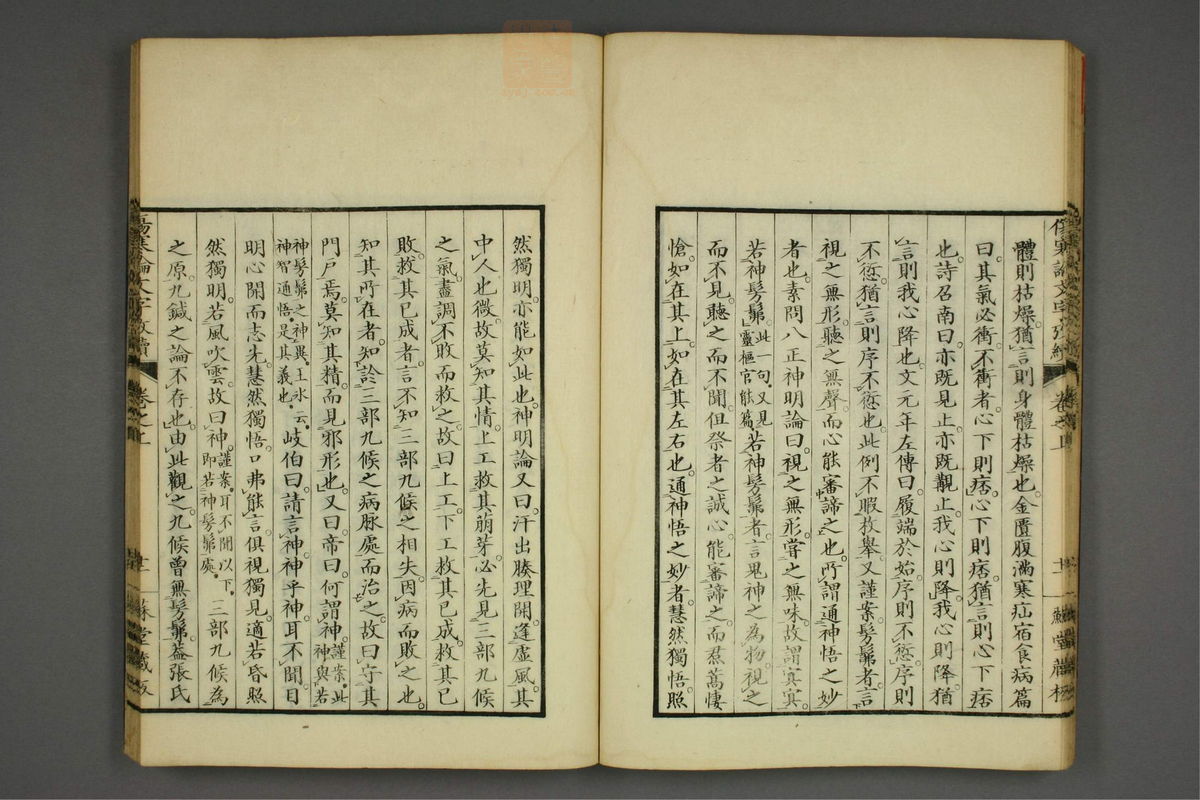 體則枯燥。猶言則身體枯燥也。金匱腹滿寒疝宿食病篇
曰其氣必衝。不衝者。心下則痞。心下則痞。猶言則心下痞
也。詩召南曰。亦既見止。亦既覯止。我心則降。我心則降。猶
言則我心降也。文元年左傳曰。履端於始。序則不愆。序則
不愆。猶言則序不愆也。此例不暇枚舉。又謹案髣髴者。言
視之無形。聽之無聲。而心能審諦之也。所謂通神悟之妙
者也。素問八正神明論曰。視之無形。嘗之無味。故謂冥冥。
若神髣髴。此一句。又見靈樞官能篇。若神髣髴者。言鬼神之為物。視之
而不見。聽之而不聞。但祭者之誠心。能審諦之。而焄蒿悽
愴。如在其上。如在其左右也。通神悟之妙者。慧然獨悟。照
然獨明。亦能如此也。神明論又曰。汗出腠理開。逢虛風。其
中人也微。故莫知其情。上工救其萌芽。必先見三部九候
之氣。盡調不敗而救之。故曰上工。下工救其已成。救其已
敗。救其已成者。言不知三部九候之相失。因病而敗之也。
知其所在者。知診三部九候之病脉處而治之。故曰守其
門戶焉。莫知其精。而見邪形也。又曰。帝曰。何謂神。謹案。此神與若
神髣髴之神異。王氷云。神智通悟。是其義也。岐伯曰。請言神。神乎神。耳不聞。目
明心開而志先。慧然獨悟。口弗能言。俱視獨見。適若昏。照
然獨明。若風吹雲。故曰神。謹案。耳不聞以下。即若神髣髴處。三部九候為
之原。九鍼之論不存也。由此觀之。九候曾無髣髴。蓋張氏
傷寒論文字攷續 卷之上